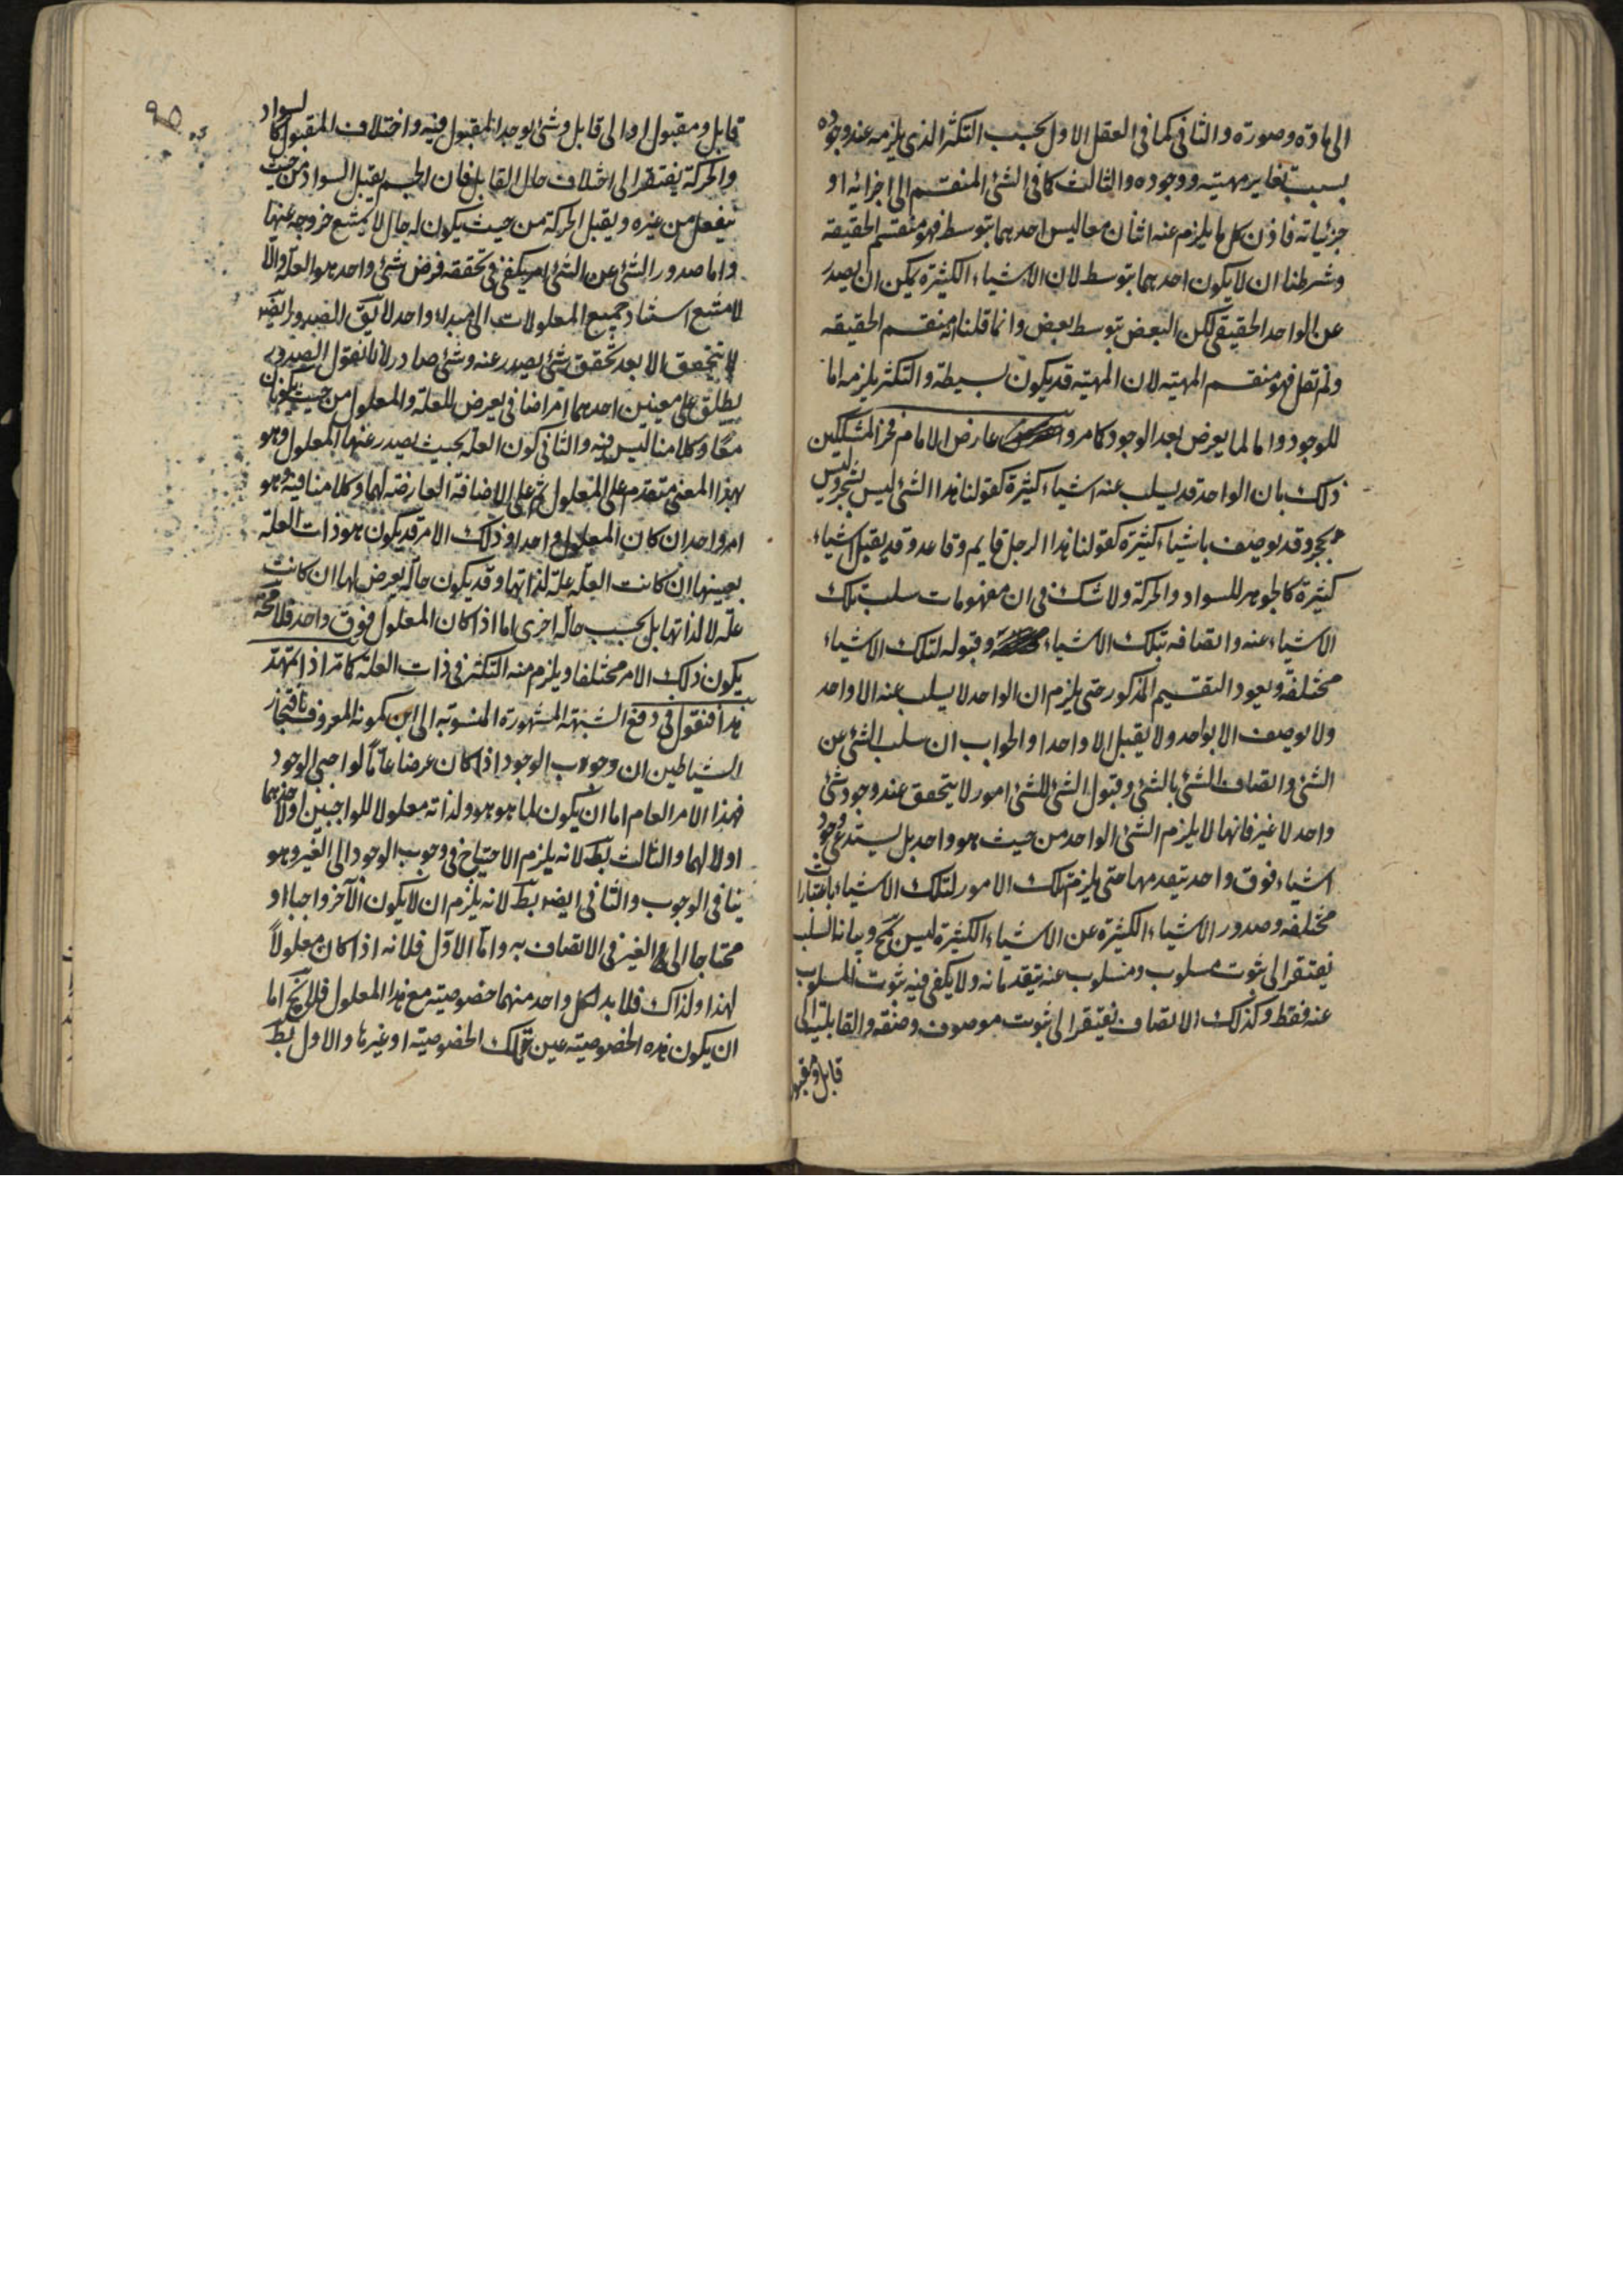 الى مادة وصورة والثانى كما فى العقل الاول بحسب التكثر الذى يلزمه عند وجوده
بسبب تغاير مهيته ووجوده والثالث كما فى الشئ المنقسم الى اجزائه او
جزئياته فاذن كل ما يلزم عنه اثنان معا ليس احدهما بتوسط فهو منقسم الحقيقة
وشرطنا ان لا يكون احدهما بتوسط لان الاشياء الكثيرة يمكن ان يصدر
عن الواحد الحقيقى لكن البعض بتوسط بعض وانما قلنا انه منقسم الحقيقه
ولم نقل فهو منقسم المهيته لان المهيته قد يكون بسيطة والتكثر يلزمه اما
للوجود واما لما يعرض بعد الوجود كما مر و عارض الامام فخر المتكلمين
ذلك بان الواحد قد يسلب عنه اشياء كثيرة كقولنا هذا الشئ ليس بشجر وليس
بحجر وقد يوصف باشياء كثيرة كقولنا هذا الرجل قايم وقاعد وقد يقبل اشياء
كثيرة كالجوهر للسواد والحركة ولا شك فى ان مفهومات سلب تلك
الاشياء عنه واتصافه بتلك الاشياء وقبوله لتلك الاشياء
مختلفة ويعود التقسيم المذكور حتى يلزم ان الواحد لا يسلب عنه الا واحد
ولا يوصف الا بواحد ولا يقبل الا واحدا والجواب ان سلب الشئ عن
الشئ واتصاف الشئ بالشئ وقبول الشئ للشئ امور لا يتحقق عند وجود شئ
واحد لا غير فانها لا يلزم الشئ الواحد من حيث هو واحد بل يستدعى وجود
اشياء فوق واحد تتقدمها حتى يلزم تلك الامور لتلك الاشياء باعتبارات
مختلفه وصدور الاشياء الكثيرة عن الاشياء الكثيرة ليس بمح وبيانه السلب
يفتقر الى ثبوت مسلوب ومسلوب عنه يتقدمانه ولا يكفى فيه ثبوت المسلوب
عنه فقط وكذلك الاتصاف يفتقر الى ثبوت موصوف وصفة والقابلية الى
قابل ومقبول
٩٥
قابل ومقبول او الى قابل وشئ يوجد المقبول فيه واختلاف المقبول كالسواد
والحركة يفتقر الى اختلاف حال القابل فان الجسم يقبل السواد من حيث
ينفعل من غيره ويقبل الحركة من حيث يكون له حال لا يمتنع خروجه عنها
واما صدور الشئ عن الشئ امر يكفى فى تحققه فرض شئ واحد هو العلة والا
لامتنع استناد جميع المعلولات الى مبداء واحد لا يق الصدور ايضا
لا يتحقق الا بعد تحقق شئ يصدر عنه وشئ صادر لانا نقول الصدور
يطلق على معنيين احدهما امر اضافى يعرض للعلة والمعلول من حيث يكونان
معا وكلامنا ليس فيه والثانى كون العلة بحيث يصدر عنها المعلول وهو
بهذا المعنى متقدم على المعلول ثم على الاضافة العارضة لهما وكلامنا فيه وهو
امر واحد ان كان المعلول واحدا وذلك الامر قد يكون هو ذات العلة
بعينها ان كانت العلة علة لذاتها وقد يكون حالة يعرض لها ان كانت
علة لا لذاتها بل بحسب حالة اخرى اما اذا كان المعلول فوق واحد فلا محة
يكون ذلك الامر مختلفا ويلزم منه التكثر فى ذات العلة كما مر اذا تمهد
هذا فنقول فى دفع الشبهة المشهورة المنسوبة الى ابن كمونه المعروف بافتخار
الشياطين ان وجوب الوجود اذا كان عرضا عاما لواجبى الوجود
فهذا الامر العام اما ان يكون لما هو هو ولذاته معلولا للواجبين او لاحدهما
او لا لهما والثالث بط لانه يلزم الاحتياج فى وجوب الوجود الى الغير وهو
ينافى الوجوب والثانى ايض بط لانه يلزم ان لا يكون الآخر واجبا او
محتاجا الى الغير فى الاتصاف به واما الاول فلانه اذا كان معلولا
لهذا ولذاك فلا بد لكل واحد منهما خصوصية مع هذا المعلول فلا يخ اما
ان يكون هذه الخصوصية عين تلك الخصوصية او غيرها والاول بط